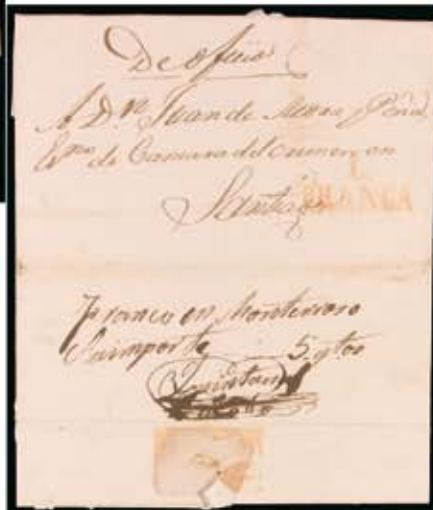 De oficio
A D.ⁿ Juan de Mora y Peña
Esno de Camara del crimen en
Santiago
FRANCA
Franco en Monterroso
Su importe 5. qtos
Quintana